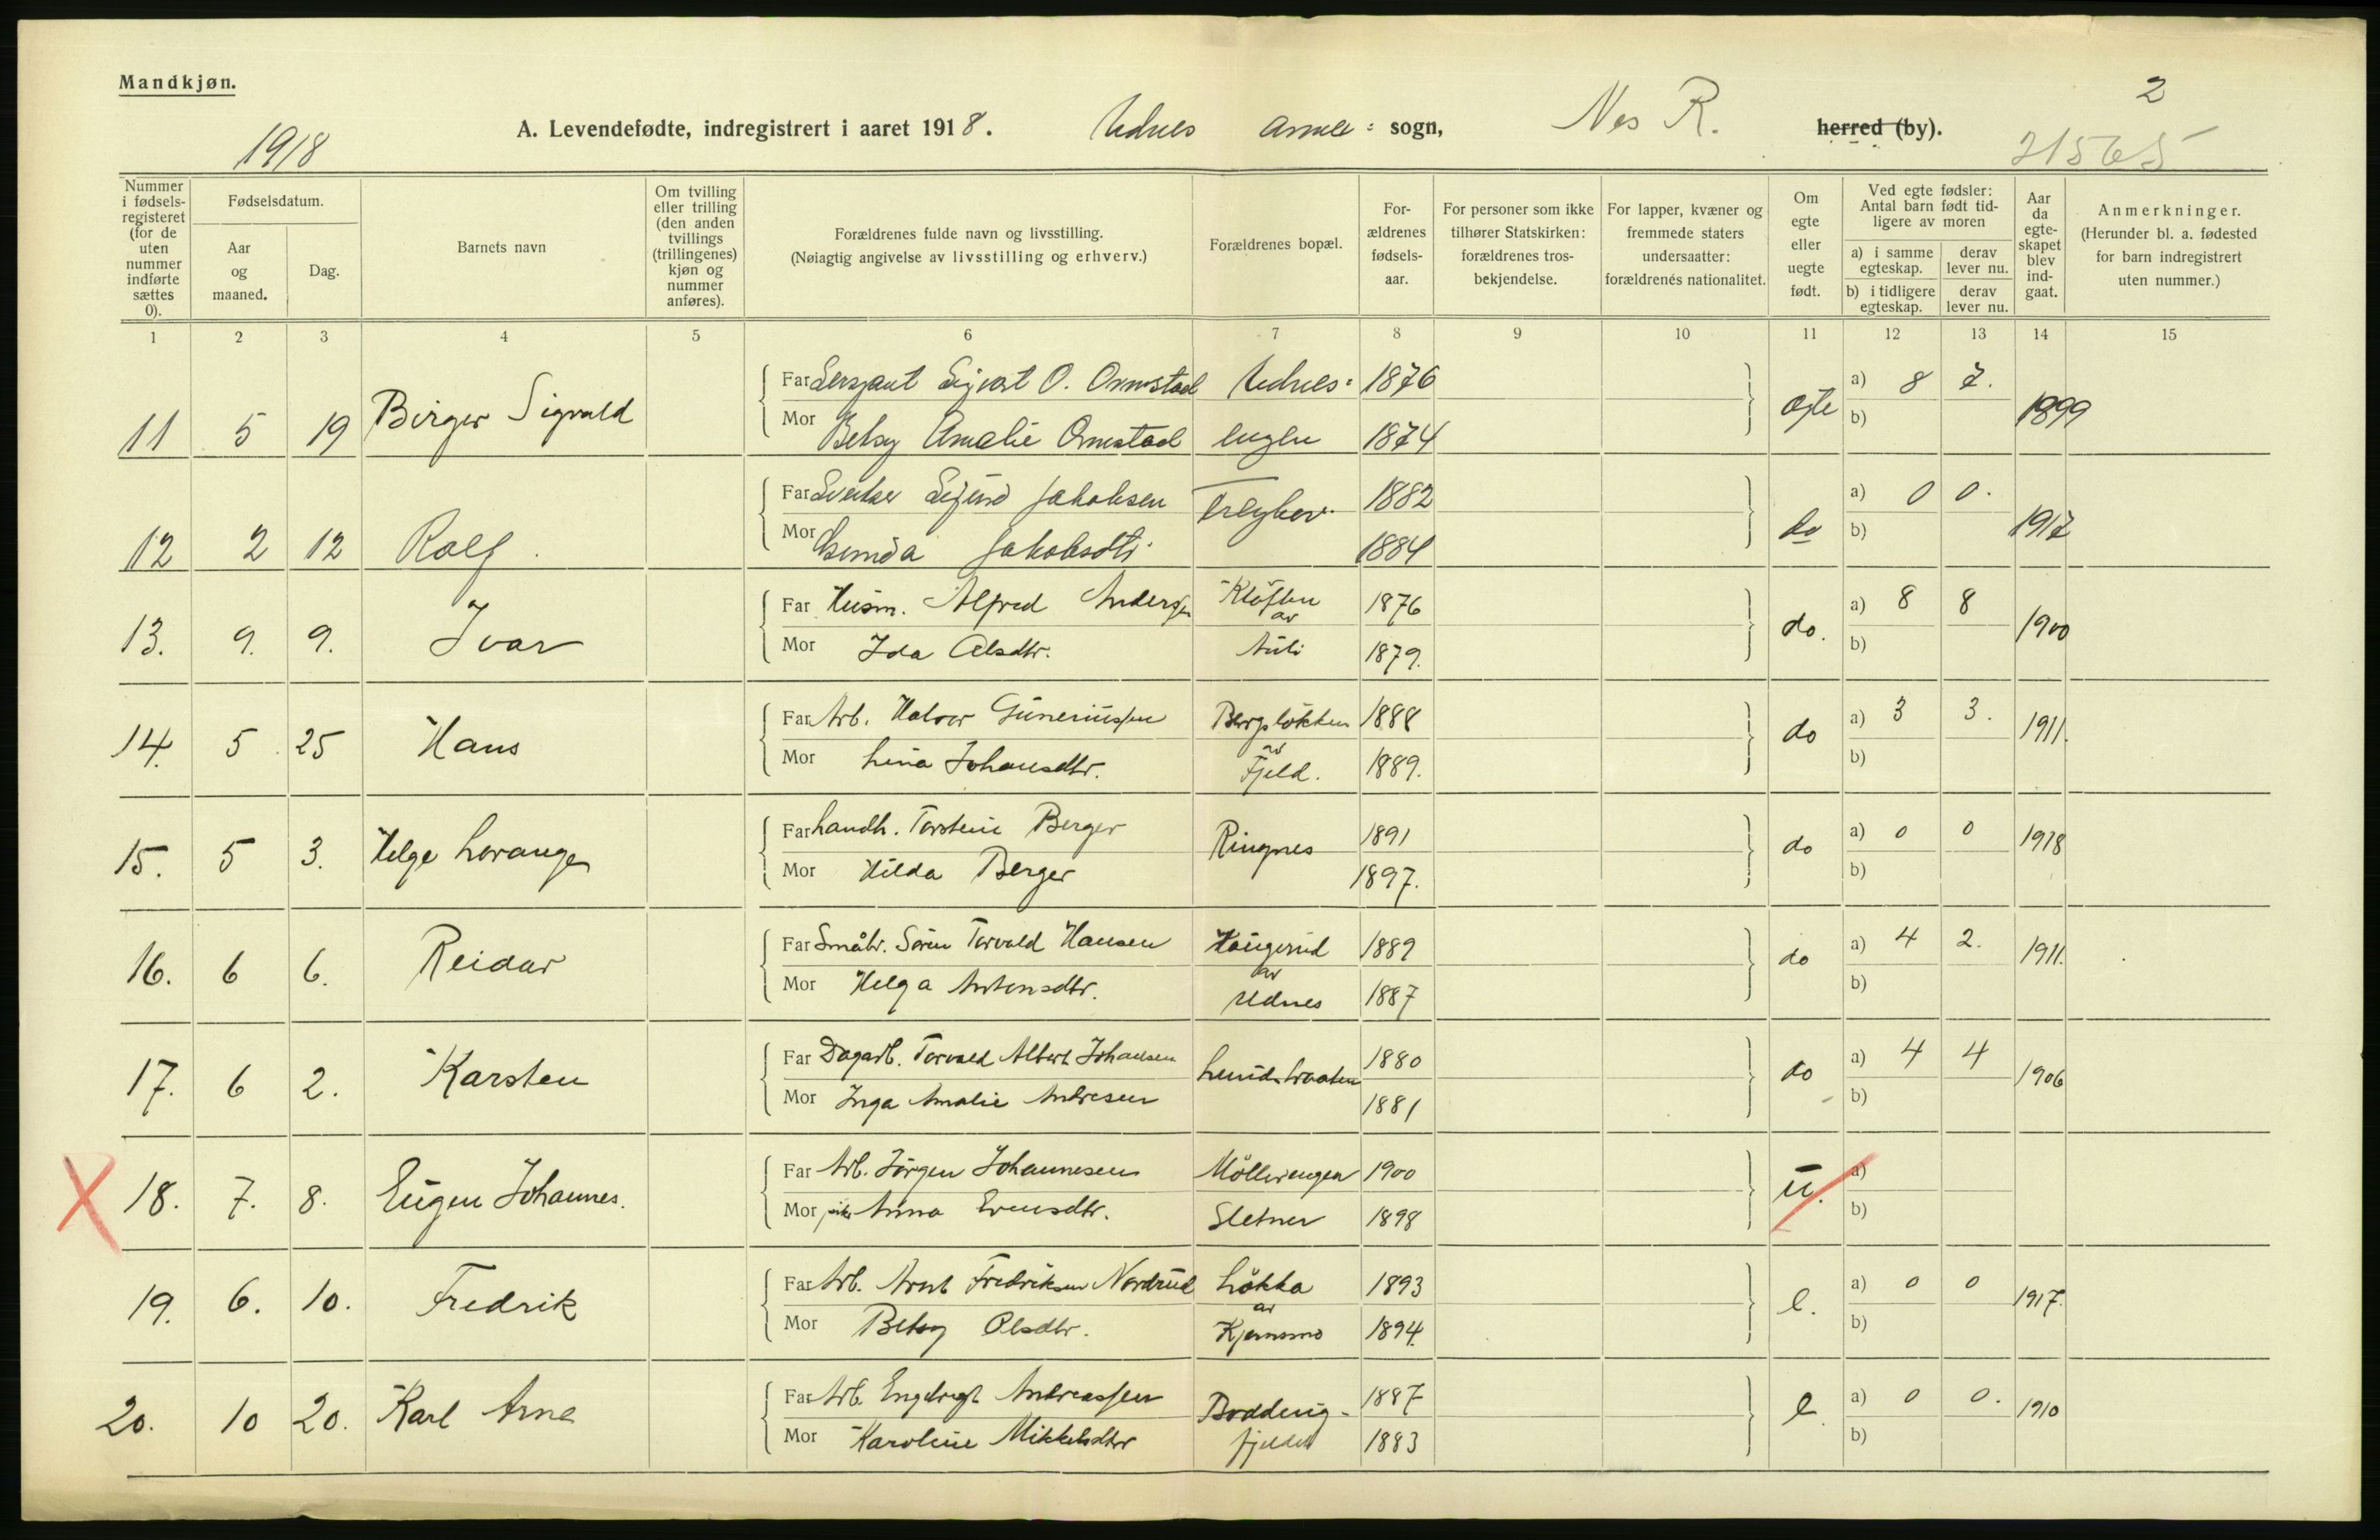 Mandkjøn.
2
A. Levendefødte, indregistrert i aaret 1918. Udnes sogn, Ness R. herred (by).
1918
21565
Nummer i fødselsregisteret (for de uten nummer indførte sættes 0).
Fødselsdatum.
Aar og maaned.
Dag.
Barnets navn
Om tvilling eller trilling (den anden tvillings (trillingenes) kjøn og nummer anføres).
Forældrenes fulde navn og livsstilling.
(Nøiagtig angivelse av livsstilling og erhverv.)
Forældrenes bopæl.
Forældrenes fødselsaar.
For personer som ikke tilhører Statskirken: forældrenes trosbekjendelse.
For lapper, kvæner og fremmede staters undersaatter: forældrenes nationalitet.
Om egte eller uegte født.
Ved egte fødsler: Antal barn født tidligere av moren
a) i samme egteskap. derav lever nu.
b) i tidligere egteskap. derav lever nu.
Aar da egteskapet blev indgaat.
Anmerkninger.
(Herunder bl. a. fødested for barn indregistrert uten nummer.)
1 2 3 4 5 6 7 8 9 10 11 12 13 14 15
Far Sersjant Sigvart O. Ormstad Udnes= 1876 a) 8 7.
11 5 19 Birger Sigvald egte 1899
Mor Betsy Amalie Ormstad engen 1874 b)
Far Jakobsen 1882 a) 0 0.
12 2 12 Rolf. do 1917
Mor Jakobsdtr. 1884 b)
Far Husm. Alfred Andersen Kløften av 1876 a) 8 8
13. 9. 9. Ivar do. 1900
Mor Ida Olsdtr. Auli 1879. b)
Far Arb. Halvor Guneriussen Bergsløkken av 1888 a) 3 3.
14. 5 25 Hans do 1911.
Mor Lina Johansdtr. Fjeld. 1889. b)
Far Landh. Torstein Berger 1891 a) 0 0
15. 5 3. Helge Lorange Ringnes do 1918
Mor Hilda Berger 1897. b)
Far Småbr. Søren Torvald Hansen Haugerud av 1889 a) 4 2.
16. 6 6. Reidar do 1911.
Mor Helga Antonsdtr. Udnes 1887 b)
Far Dagarb. Torvald Albert Johansen 1880 a) 4 4
17. 6 2. Karsten do 1906
Mor Inga Amalie Andresen 1881 b)
Far Arb. Jörgen Johannesen Möllerengen 1900 a)
18. 7. 8. Eugen Johannes. u.
Mor pike Anna Evensdtr. Sletner 1898 b)
Far Arb. Arnt Fredriksen Nordrud Løkka av 1893 a) 0 0
19. 6. 10. Fredrik e. 1917.
Mor Betsy Olsdtr. Kjernsmo 1894. b)
Far Arb. Engebregt Andreassen 1887 a) 0 0.
20. 10 20. Karl Arne Bodding- e. 1910
Mor Karoline Mikkelsdtr fjeldet 1883 b)